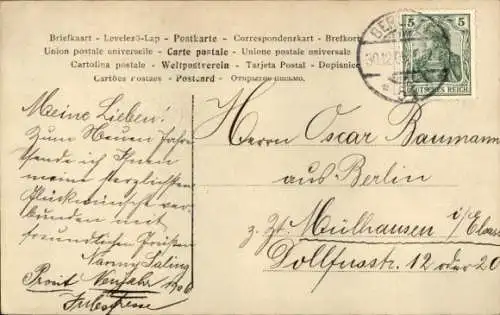 Briefkaart - Levelező-Lap - Postkarte - Correspondenzkart - Brefkort
Union postale universelle - Carte postale - Unione postale universale
Cartolina postale - Weltpostverein - Tarjeta Postal - Dopisnice
Cartões Postaes - Postcard - Открытое письмо.
5 5
DEUTSCHES REICH
BER
30.12.
Meine Lieben!
Zum Neuen Jahre
sende ich Ihnen
meine herzlichsten
Glückwünsche ver-
bunden mit
freundlichen Grüßen
Nanny Saling
Prosit Neujahr 1906
Herrn Oscar Baumann
aus Berlin
z. Zt. Mülhausen i/Elsass
Dollfusstr. 12 oder 20